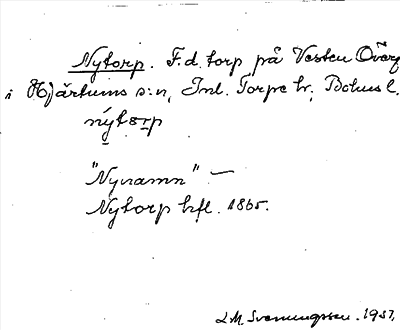 Nytorp. F.d. torp på Vesten Överg
i Hjärtums s:n, Inl. Torpe hr, Bohusl.
nýtorp
"Nynamn" —
Nytorp hfl. 1865.
L.M. Svenungsson. 1957.